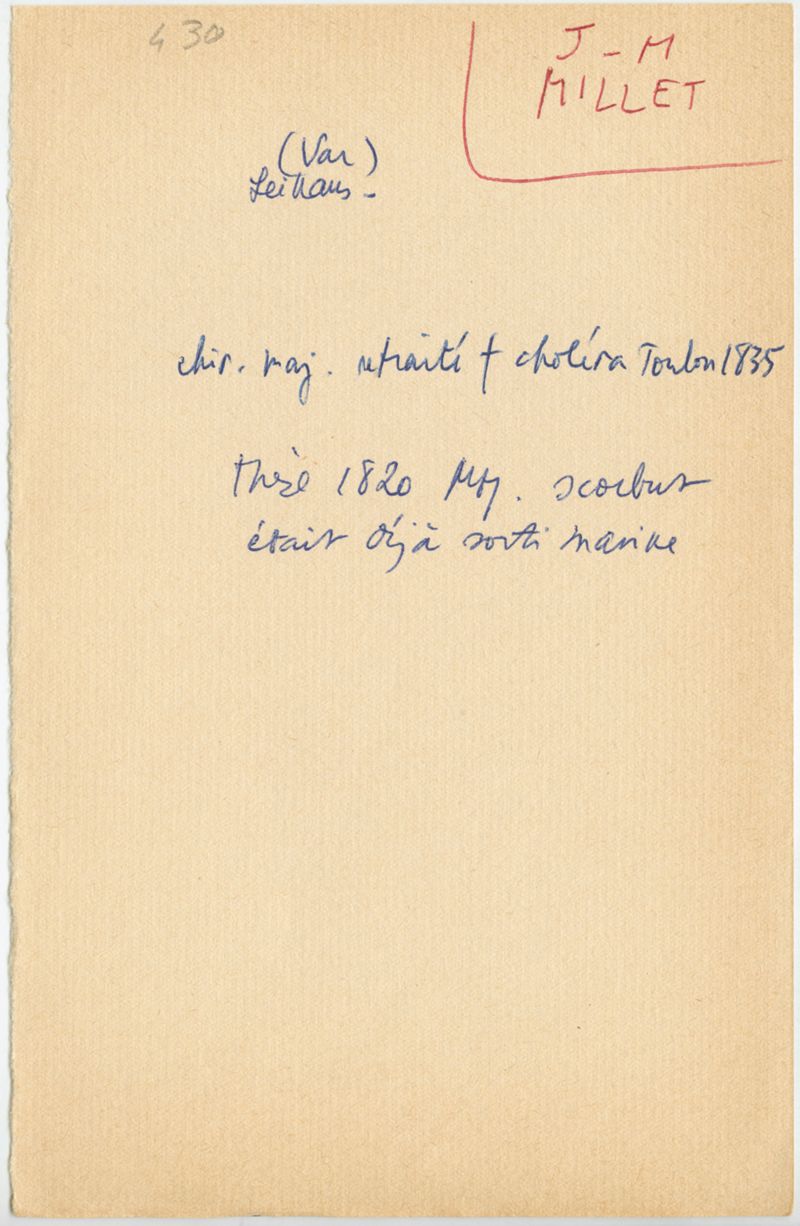 430
J-M
MILLET
(Var)
Seillans -
chir. maj. retraité † choléra Toulon 1835
thèse 1820 . scorbut
était déjà sorti marine